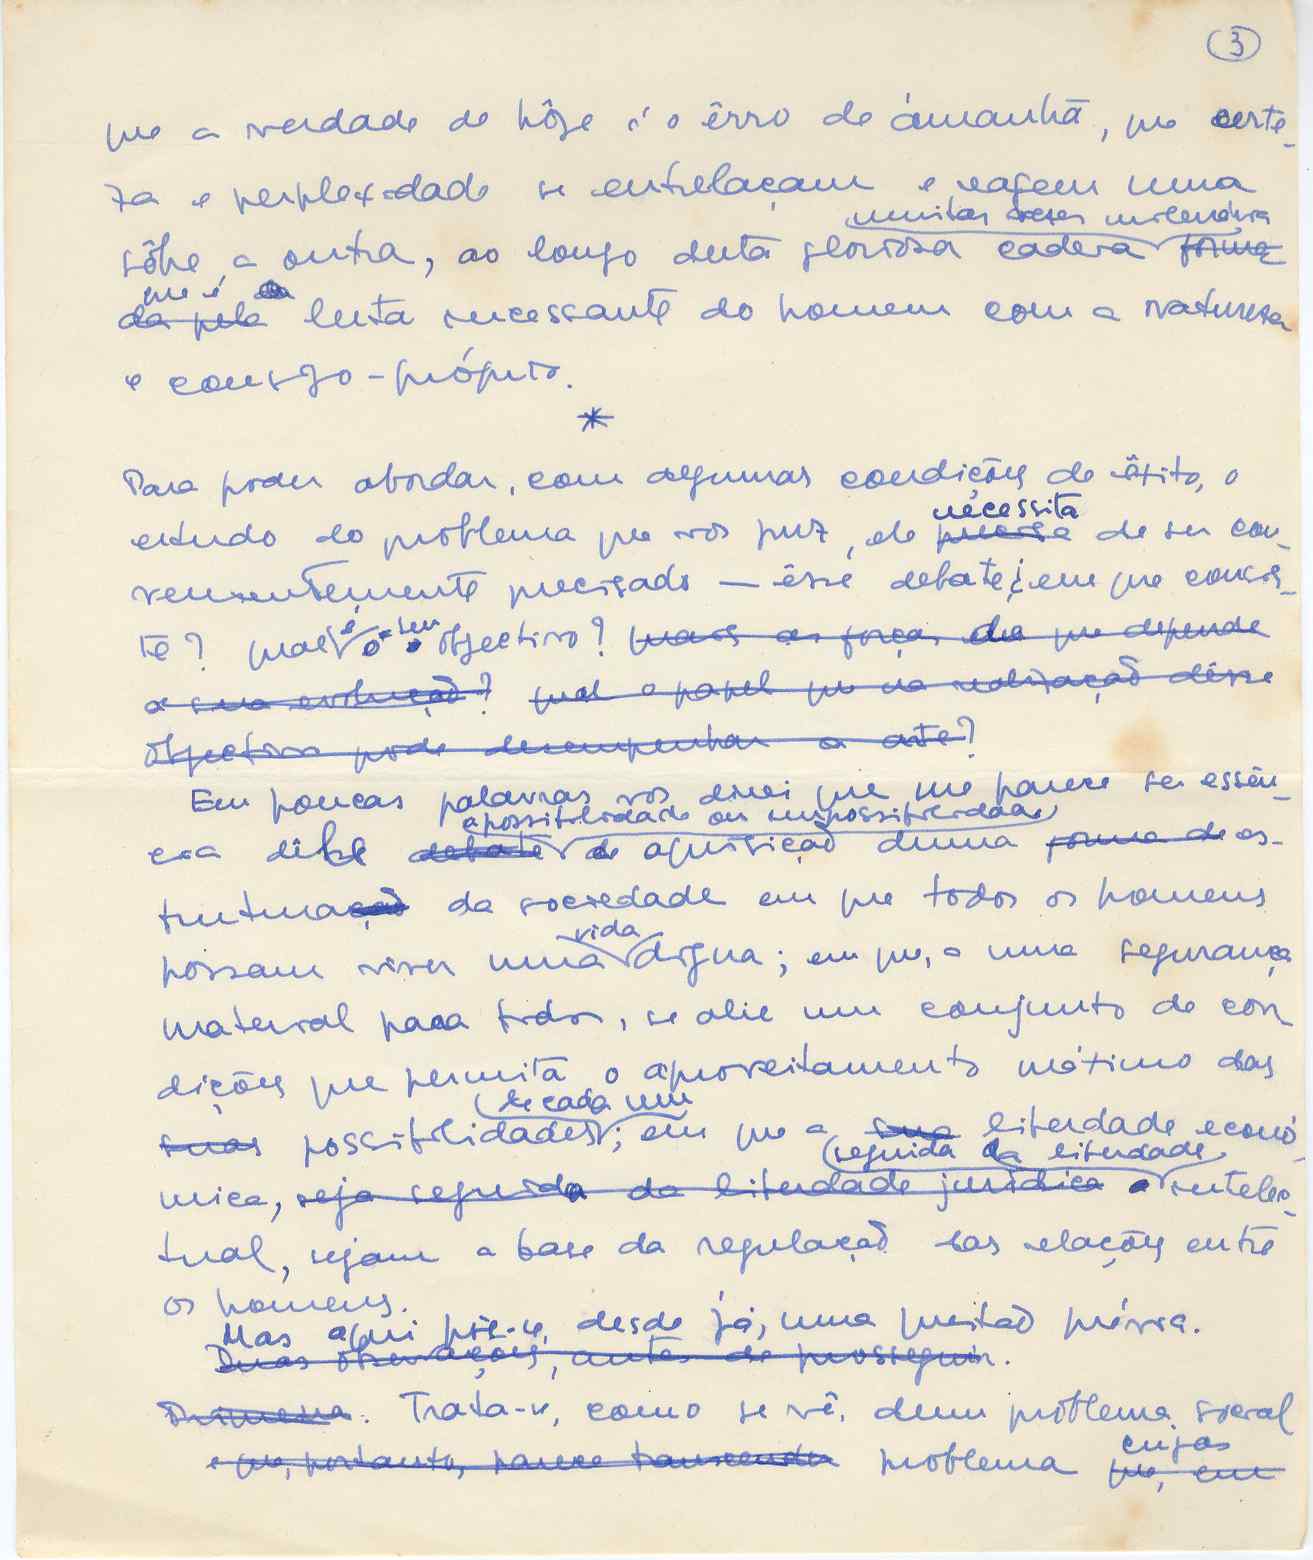 3
que a verdade de hôje é o êrro de ámanhã, que certe-
za e perplexidade se entrelaçam e reagem uma
muitas vezes milenária
sôbre a outra, ao longo desta gloriosa cadeia forma
que é a
da pela luta incessante do homem com a natureza
e consigo-próprio.
*
Para poder abordar, com algumas condições de êxito, o
necessita
estudo do problema que vos puz, ele precisa de ser con-
venientemente precisado — êsse debate, em que consis-
é seu
te? qual o objectivo? quais as forças de que depende
a sua evolução? qual o papel que na realização dêsse
objectivo pode desempenhar a arte?
Em poucas palavras vos direi que me parece ser essên-
a possibilidade ou impossibilidade
cia dêle debate de aquisição duma forma de es-
truturação da sociedade em que todos os homens
vida
possam viver uma digna; em que, a uma segurança
material para todos, se alie um conjunto de con
dições que permita o aproveitamento máximo das
de cada um
suas possibilidades; em que a sua liberdade econó-
seguida da liberdade
mica, seja seguida da liberdade jurídica e intelec-
tual, sejam a base da regulação das relações entre
os homens.
Mas aqui põe-se, desde já, uma questão prévia.
Duas observações, antes de prosseguir.
Primeira. Trata-se, como se vê, dum problema social
cujas
e que, portanto, parece transcender problema que, em